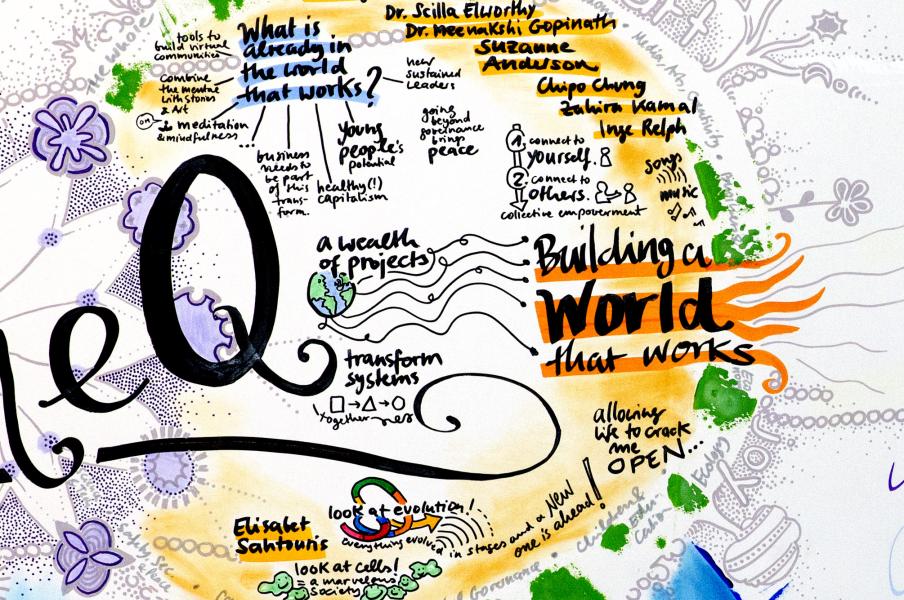 Dr. Scilla Elworthy
Dr. Meenakshi Gopinath
Suzanne
Anderson
Chipo Chung
Zahira Kamal
Inge Relph
What is
already in
the world
that works?
tools to
build virtual
communities
combine
the mental
with stories
& Art
meditation
& mindfulness
business
needs to
be part
of this
trans-
form.
healthy(!)
capitalism
young
people's
potential
new
sustained
Leaders
going
beyond
governance
brings
peace
1. connect to
yourself.
2. connect to
others.
collective empowerment
songs
music
a wealth
of projects
Building a
World
that works
eQ
transform
systems
together
allowing
life to crack
me
OPEN...
Elisabet
Sahtouris
look at evolution!
everything evolved in stages and a NEW
one is ahead!
look at cells!
= a marvelous
society
Children's
Ecology
Governance